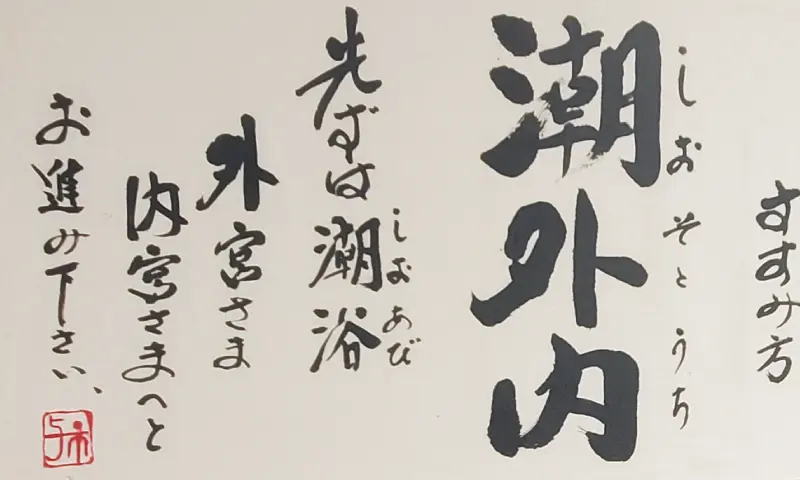 すすみ方
しお そと うち
潮外内
しおあび
先ずは潮浴
外宮さま
内宮さまへと
お進み下さい、